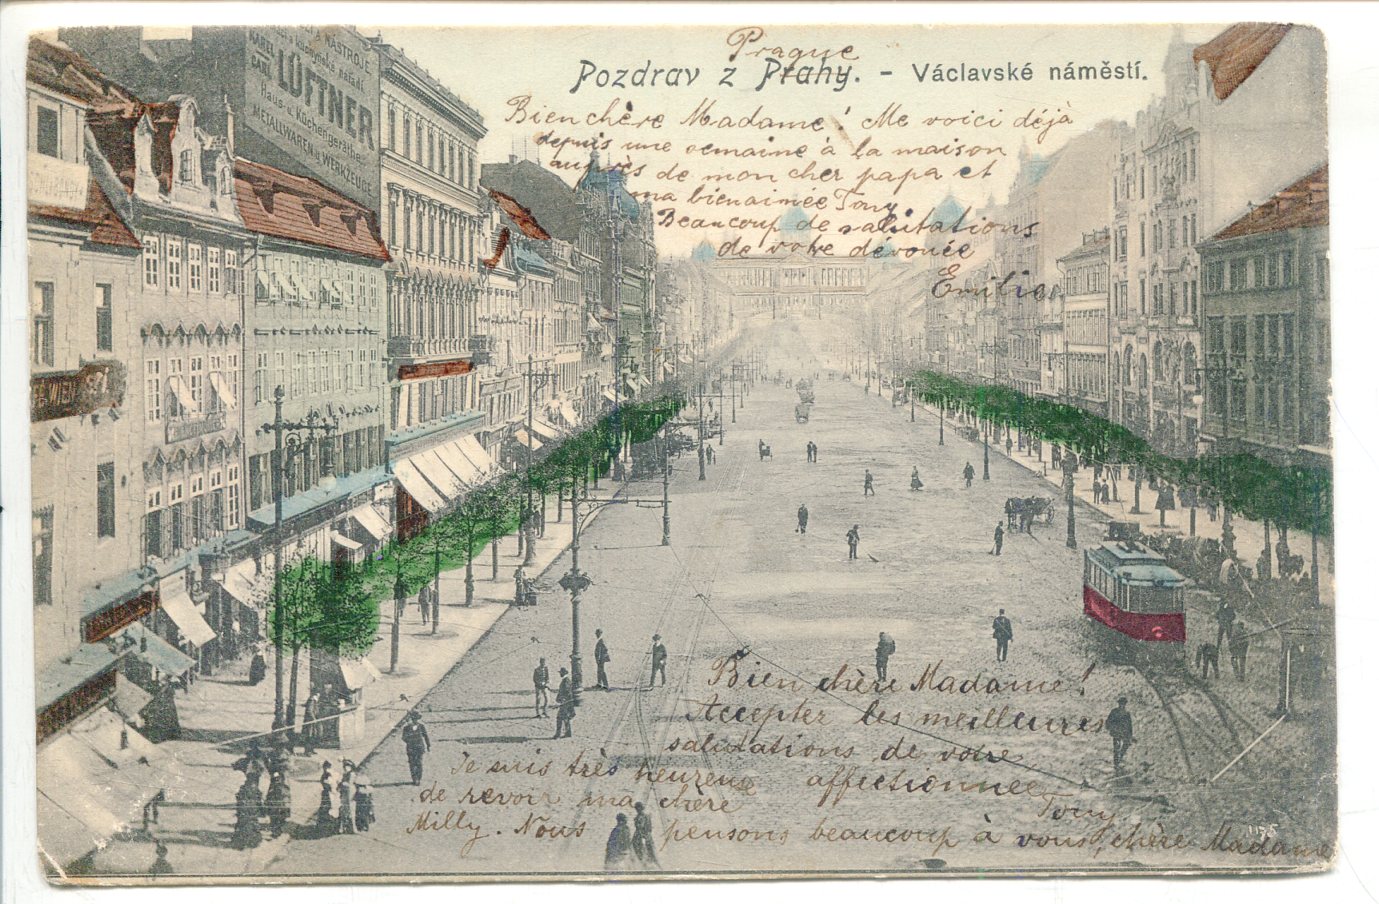 NÁSTROJE.
KAREL
CARL LÜFTNER
Haus- u. Küchengeräthe
METALLWAREN u. WERKZEUGE
Prague
Pozdrav z Prahy. - Václavské náměstí.
Bien chère Madame! Me voici déjà
depuis une semaine à la maison
auprès de mon cher papa et
ma bienaimée Tony
Beaucoup de salutations
de votre dévouée
Emilie
Bien chère Madame!
Accepter les meilleures
salutations de votre
affectionnee
Tony
Je suis très heureuse
de revoir ma chère
Milly. Nous pensons beaucoup à vous, chère Madame
1175